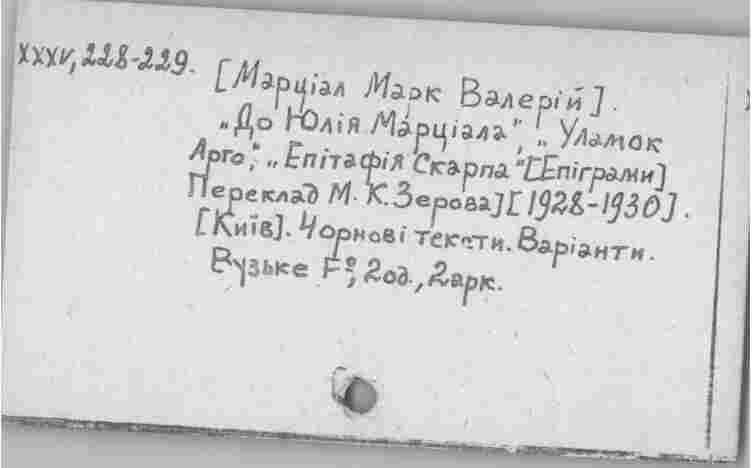 XXXV, 228-229. [Марціал Марк Валерій].
„До Юлія Марціала", „Уламок
Арго", „Епітафія Скарпа" [Епіграми]
Переклад М. К. Зерова] [1928-1930].
[Київ]. Чорнові тексти. Варіанти.
Вузьке F°, 2од., 2арк.